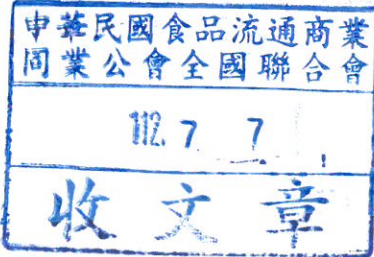 中華民國食品流通商業
同業公會全國聯合會
112. 7. 7
收文章